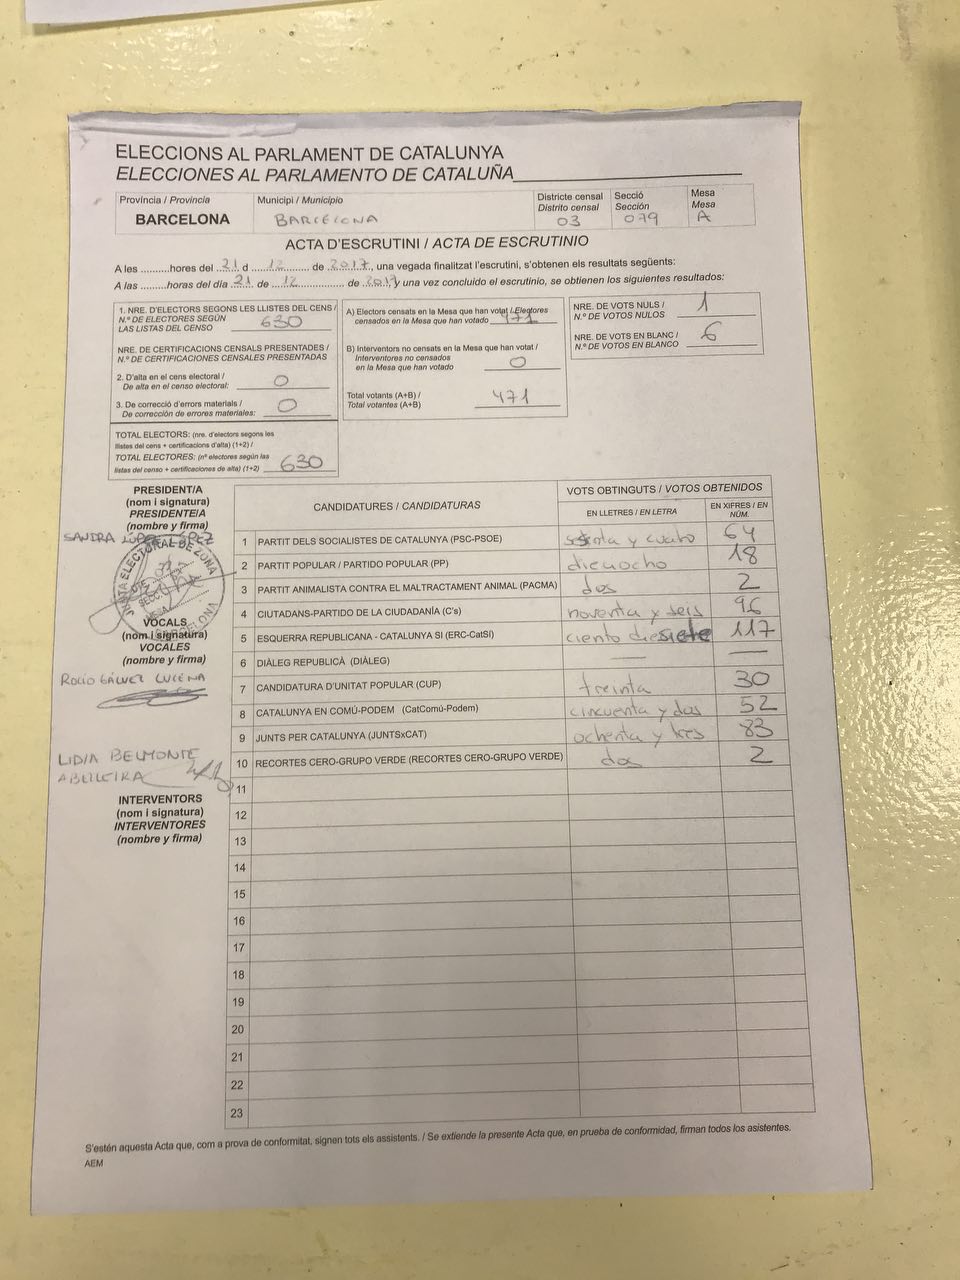 ELECCIONS AL PARLAMENT DE CATALUNYA
ELECCIONES AL PARLAMENTO DE CATALUÑA
Província / Provincia
BARCELONA
Municipi / Municipio
BARCELONA
Districte censal
Distrito censal
03
Secció
Sección
079
Mesa
Mesa
A
ACTA D'ESCRUTINI / ACTA DE ESCRUTINIO
A les ..........hores del ..21.. d ....12.......... de ..2017.., una vegada finalitzat l'escrutini, s'obtenen els resultats següents:
A las ..........horas del día ..21.. de ....12.......... de ..2017.. y una vez concluido el escrutinio, se obtienen los siguientes resultados:
1. NRE. D'ELECTORS SEGONS LES LLISTES DEL CENS /
N.º DE ELECTORES SEGÚN
LAS LISTAS DEL CENSO
630
NRE. DE CERTIFICACIONS CENSALS PRESENTADES /
N.º DE CERTIFICACIONES CENSALES PRESENTADAS
2. D'alta en el cens electoral /
De alta en el censo electoral:
0
3. De correcció d'errors materials /
De corrección de errores materiales:
0
TOTAL ELECTORS: (nre. d'electors segons les
llistes del cens + certificacions d'alta) (1+2) /
TOTAL ELECTORES: (nº electores según las
listas del censo + certificaciones de alta) (1+2)
630
A) Electors censats en la Mesa que han votat / Electores
censados en la Mesa que han votado
471
B) Interventors no censats en la Mesa que han votat /
Interventores no censados
en la Mesa que han votado
0
Total votants (A+B) /
Total votantes (A+B)
471
NRE. DE VOTS NULS /
N.º DE VOTOS NULOS
1
NRE. DE VOTS EN BLANC /
N.º DE VOTOS EN BLANCO
6
PRESIDENT/A
(nom i signatura)
PRESIDENTE/A
(nombre y firma)
SANDRA
JUNTA ELECTORAL DE ZONA
BARCELONA
VOCALS
(nom i signatura)
VOCALES
(nombre y firma)
ROCÍO GÁLVEZ LUCENA
LIDIA BELMONTE
INTERVENTORS
(nom i signatura)
INTERVENTORES
(nombre y firma)
CANDIDATURES / CANDIDATURAS
VOTS OBTINGUTS / VOTOS OBTENIDOS
EN LLETRES / EN LETRA
EN XIFRES / EN NÚM.
1 PARTIT DELS SOCIALISTES DE CATALUNYA (PSC-PSOE) sesenta y cuatro 64
2 PARTIT POPULAR / PARTIDO POPULAR (PP) dieciocho 18
3 PARTIT ANIMALISTA CONTRA EL MALTRACTAMENT ANIMAL (PACMA) dos 2
4 CIUTADANS-PARTIDO DE LA CIUDADANÍA (C's) noventa y seis 96
5 ESQUERRA REPUBLICANA - CATALUNYA SI (ERC-CatSí) ciento diesiete 117
6 DIÀLEG REPUBLICÀ (DIÀLEG) — —
7 CANDIDATURA D'UNITAT POPULAR (CUP) treinta 30
8 CATALUNYA EN COMÚ-PODEM (CatComú-Podem) cincuenta y dos 52
9 JUNTS PER CATALUNYA (JUNTSxCAT) ochenta y tres 83
10 RECORTES CERO-GRUPO VERDE (RECORTES CERO-GRUPO VERDE) dos 2
11
12
13
14
15
16
17
18
19
20
21
22
23
S'estén aquesta Acta que, com a prova de conformitat, signen tots els assistents. / Se extiende la presente Acta que, en prueba de conformidad, firman todos los asistentes.
AEM